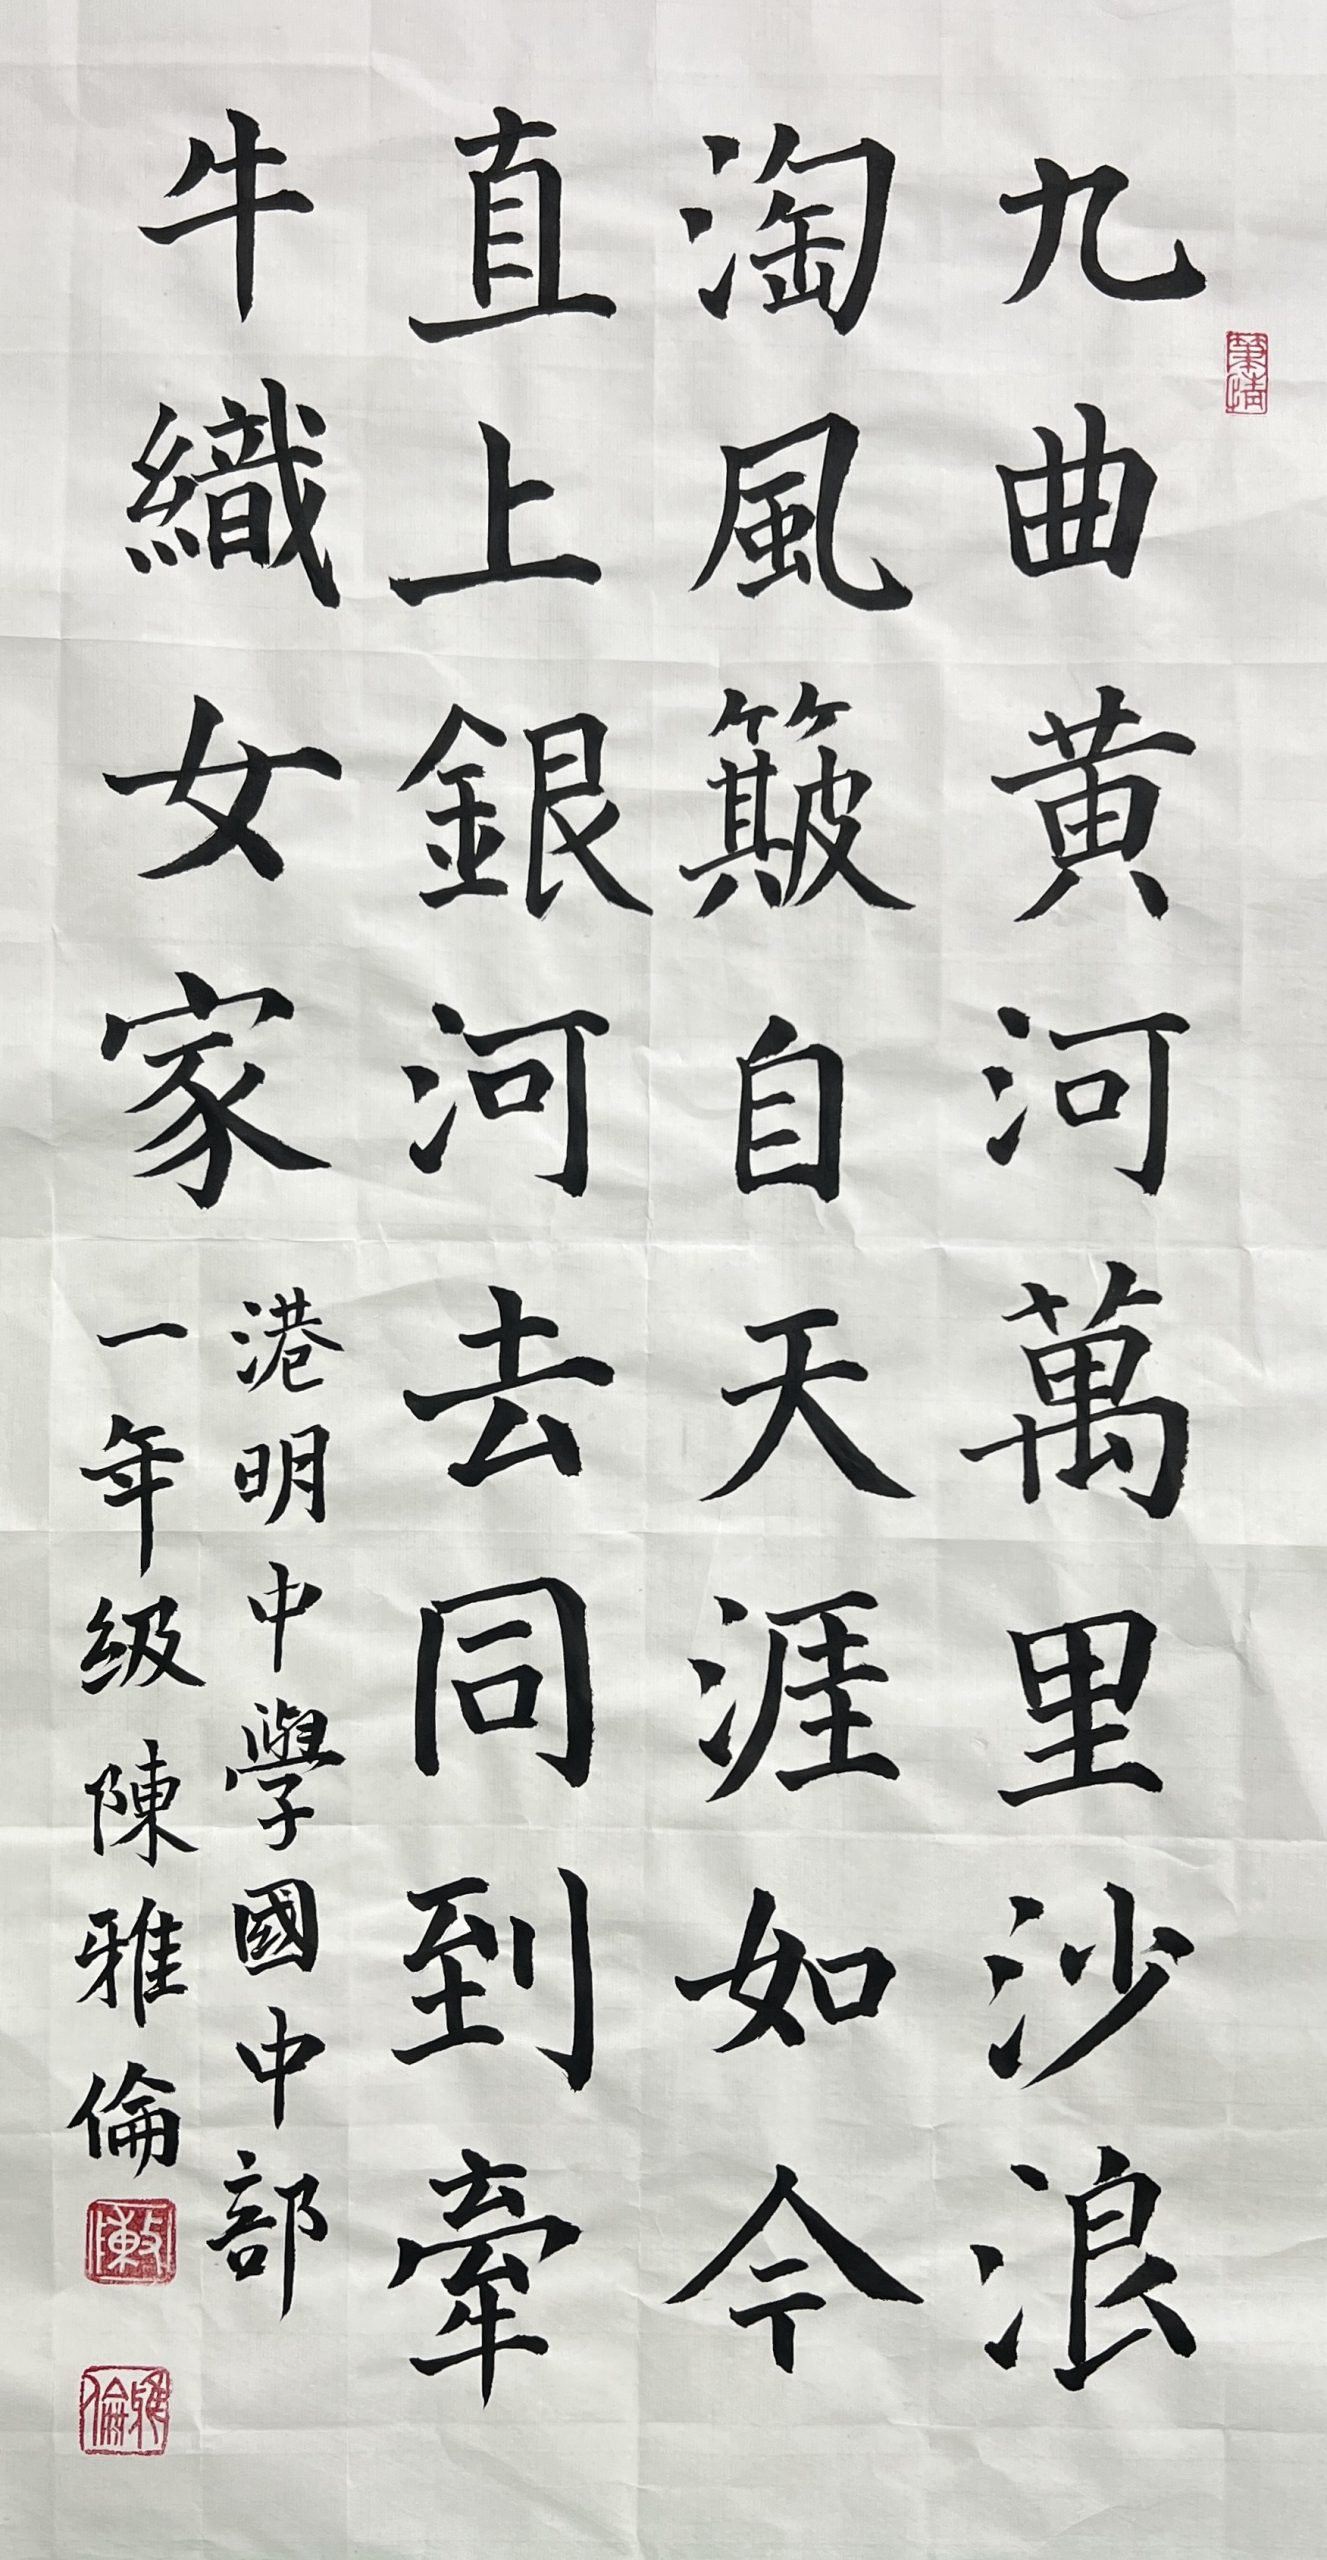 九曲黃河萬里沙浪
淘風簸自天涯如今
直上銀河去同到牽
牛織女家
港明中學國中部
一年級陳雅倫
陳
雅倫